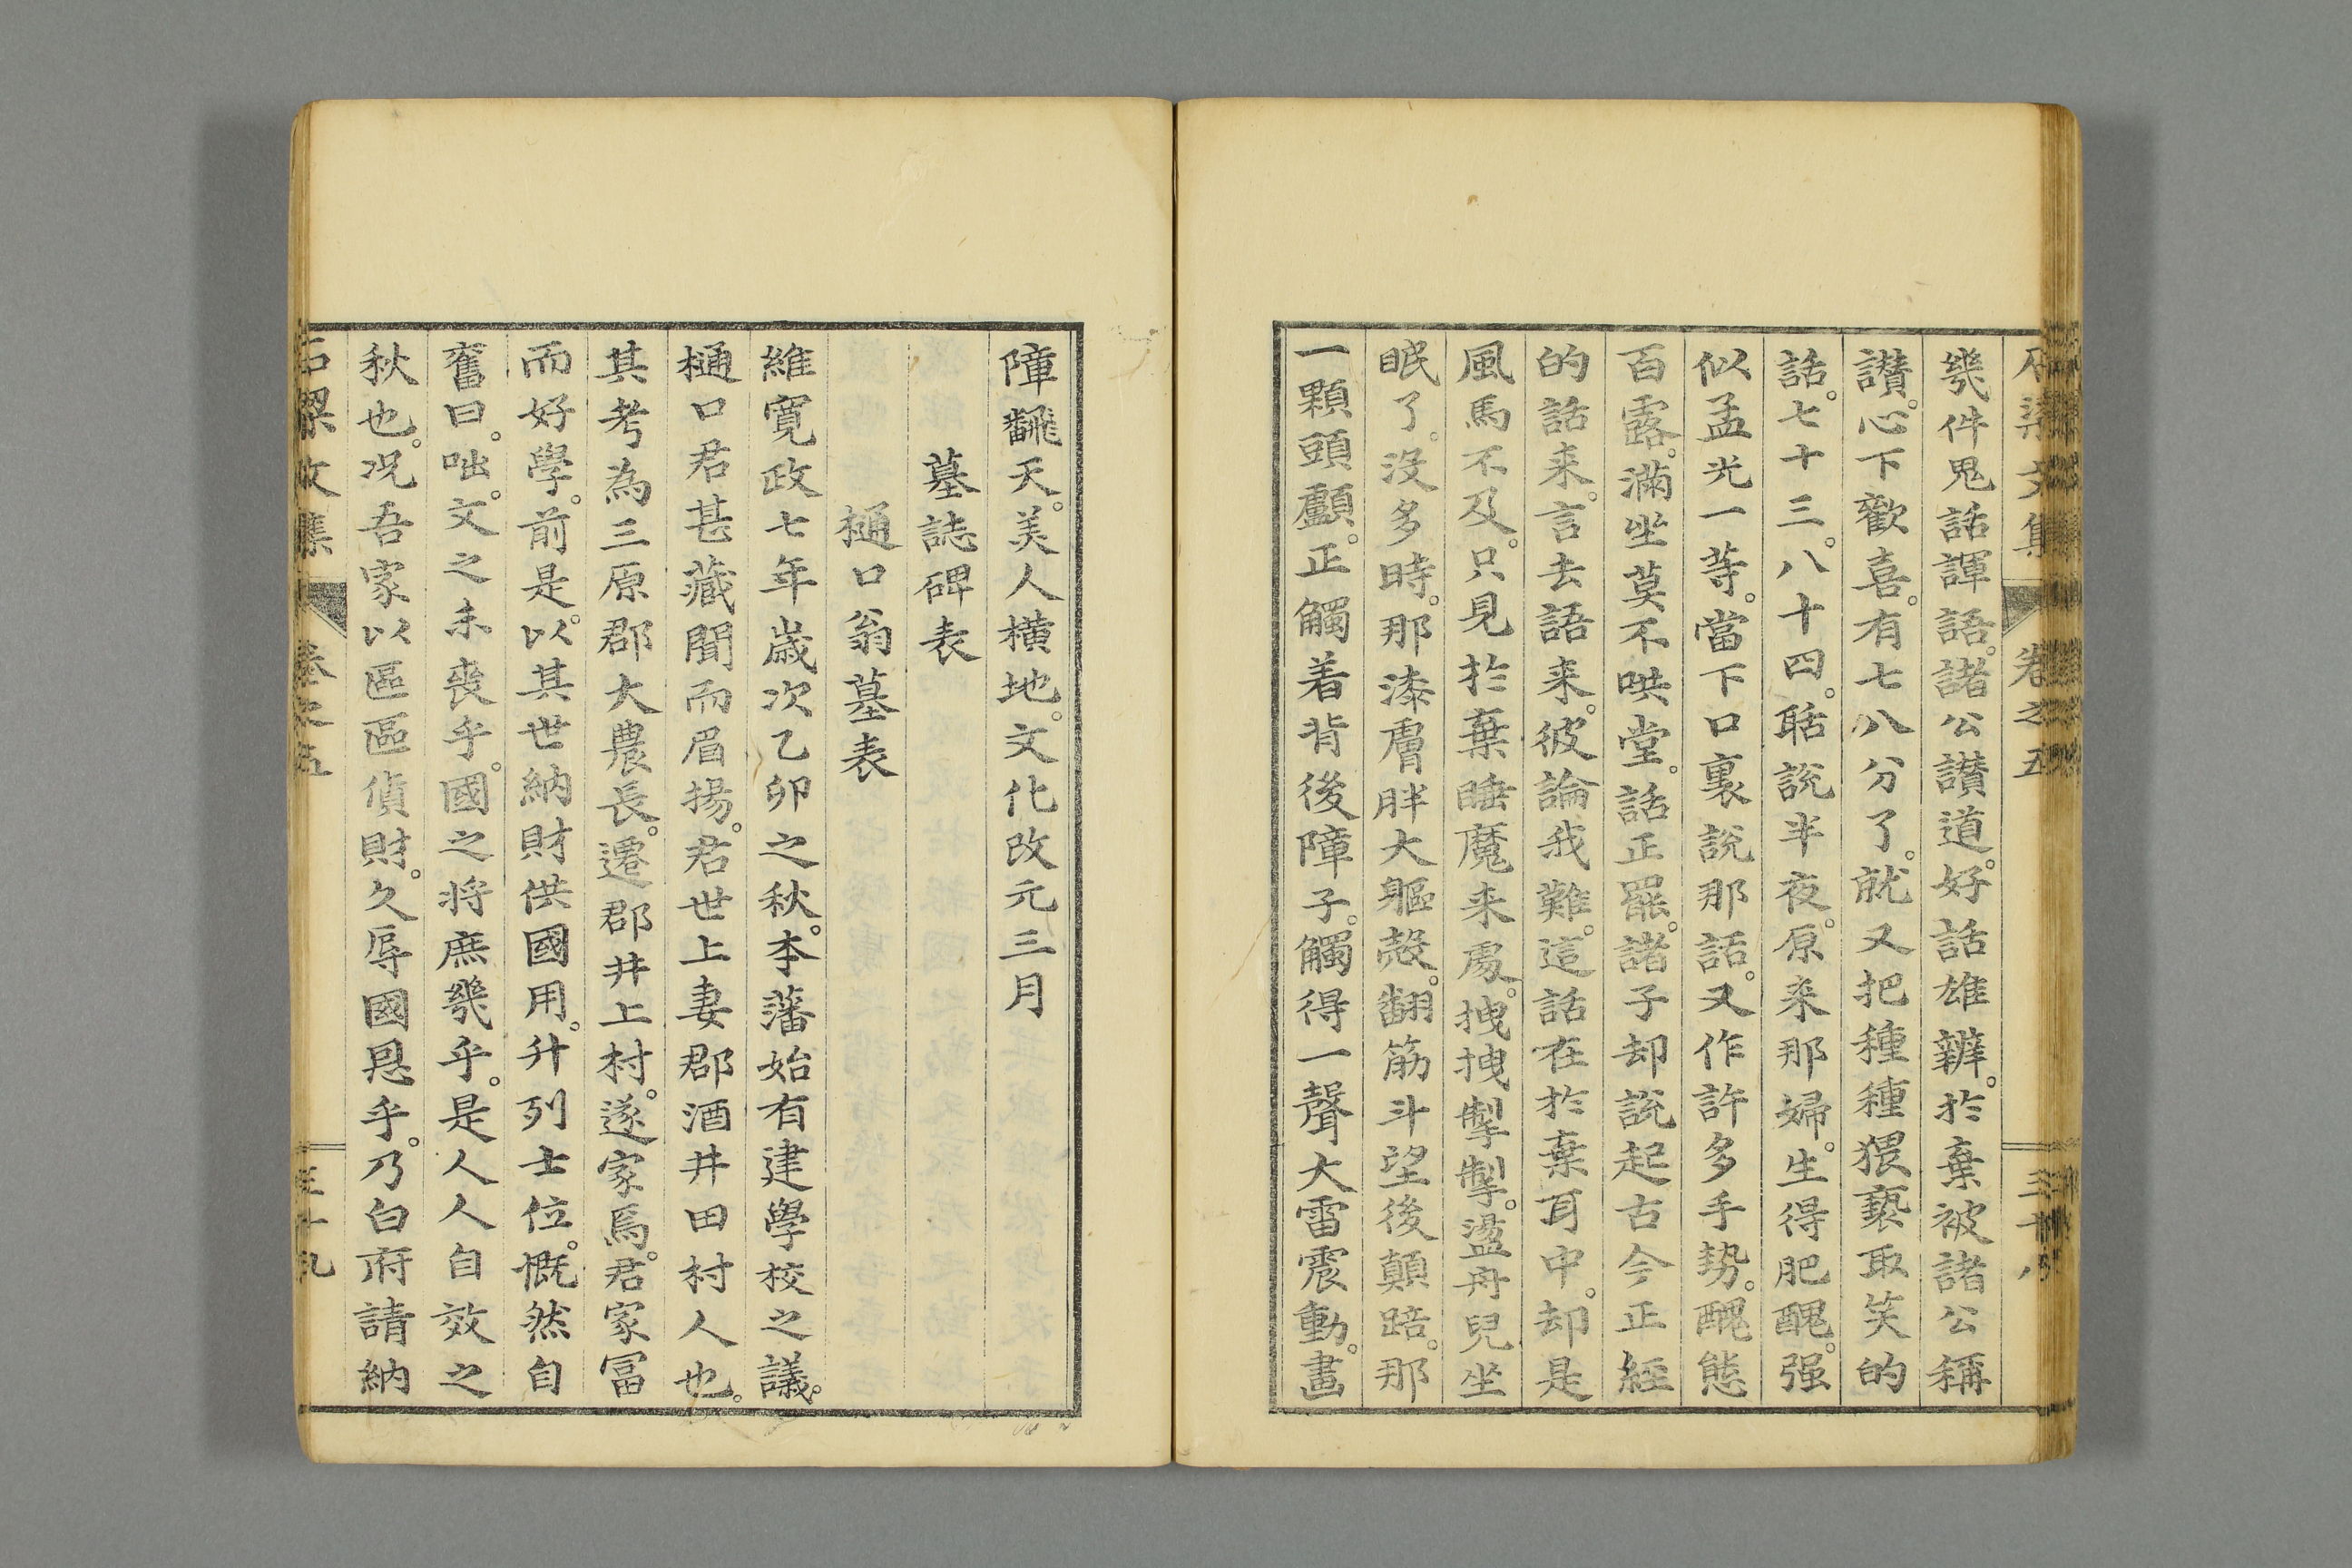 石梁文集 卷之五 三十八
幾件鬼話諢語。諸公讃道。好話雄辨。於棄被諸公稱
讃。心下歡喜。有七八分了。就又把種種猥褻取笑的
話。七十三。八十四。聒說半夜。原来那婦。生得肥醜。强
似孟光一等。當下口裏說那話。又作許多手勢。醜態
百露。滿坐莫不哄堂。話正罷。諸子却說起古今正經
的話来。言去語来。彼論我難。這話在於棄耳中。却是
風馬不及。只見於棄睡魔来處。拽拽掣掣。盪舟兒坐
眠了。沒多時。那漆膚胖大軀殼。翻筋斗望後顛踣。那
一顆頭顱。正觸着背後障子。觸得一聲大雷震動。畫
障飜天。美人橫地。文化改元三月
墓誌碑表
樋口翁墓表
維寬政七年歲次乙卯之秋。本藩始有建學校之議。
樋口君甚藏聞而眉揚。君世上妻郡酒井田村人也。
其考為三原郡大農長。遷郡井上村。遂家焉。君家冨
而好學。前是。以其世納財供國用。升列士位。慨然自
奮曰。咄。文之未喪乎。國之将庶幾乎。是人人自效之
秋也。况吾家以區區償財。久辱國恩乎。乃白府請納
石梁文集 卷之五 三十九